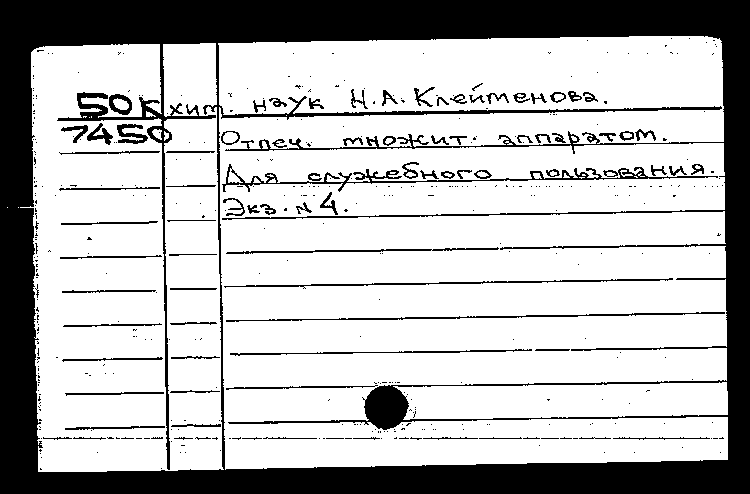 50К хим. наук Н.А. Клейменова.
7450 Отпеч. множит. аппаратом.
Для служебного пользования.
Экз. N 4.